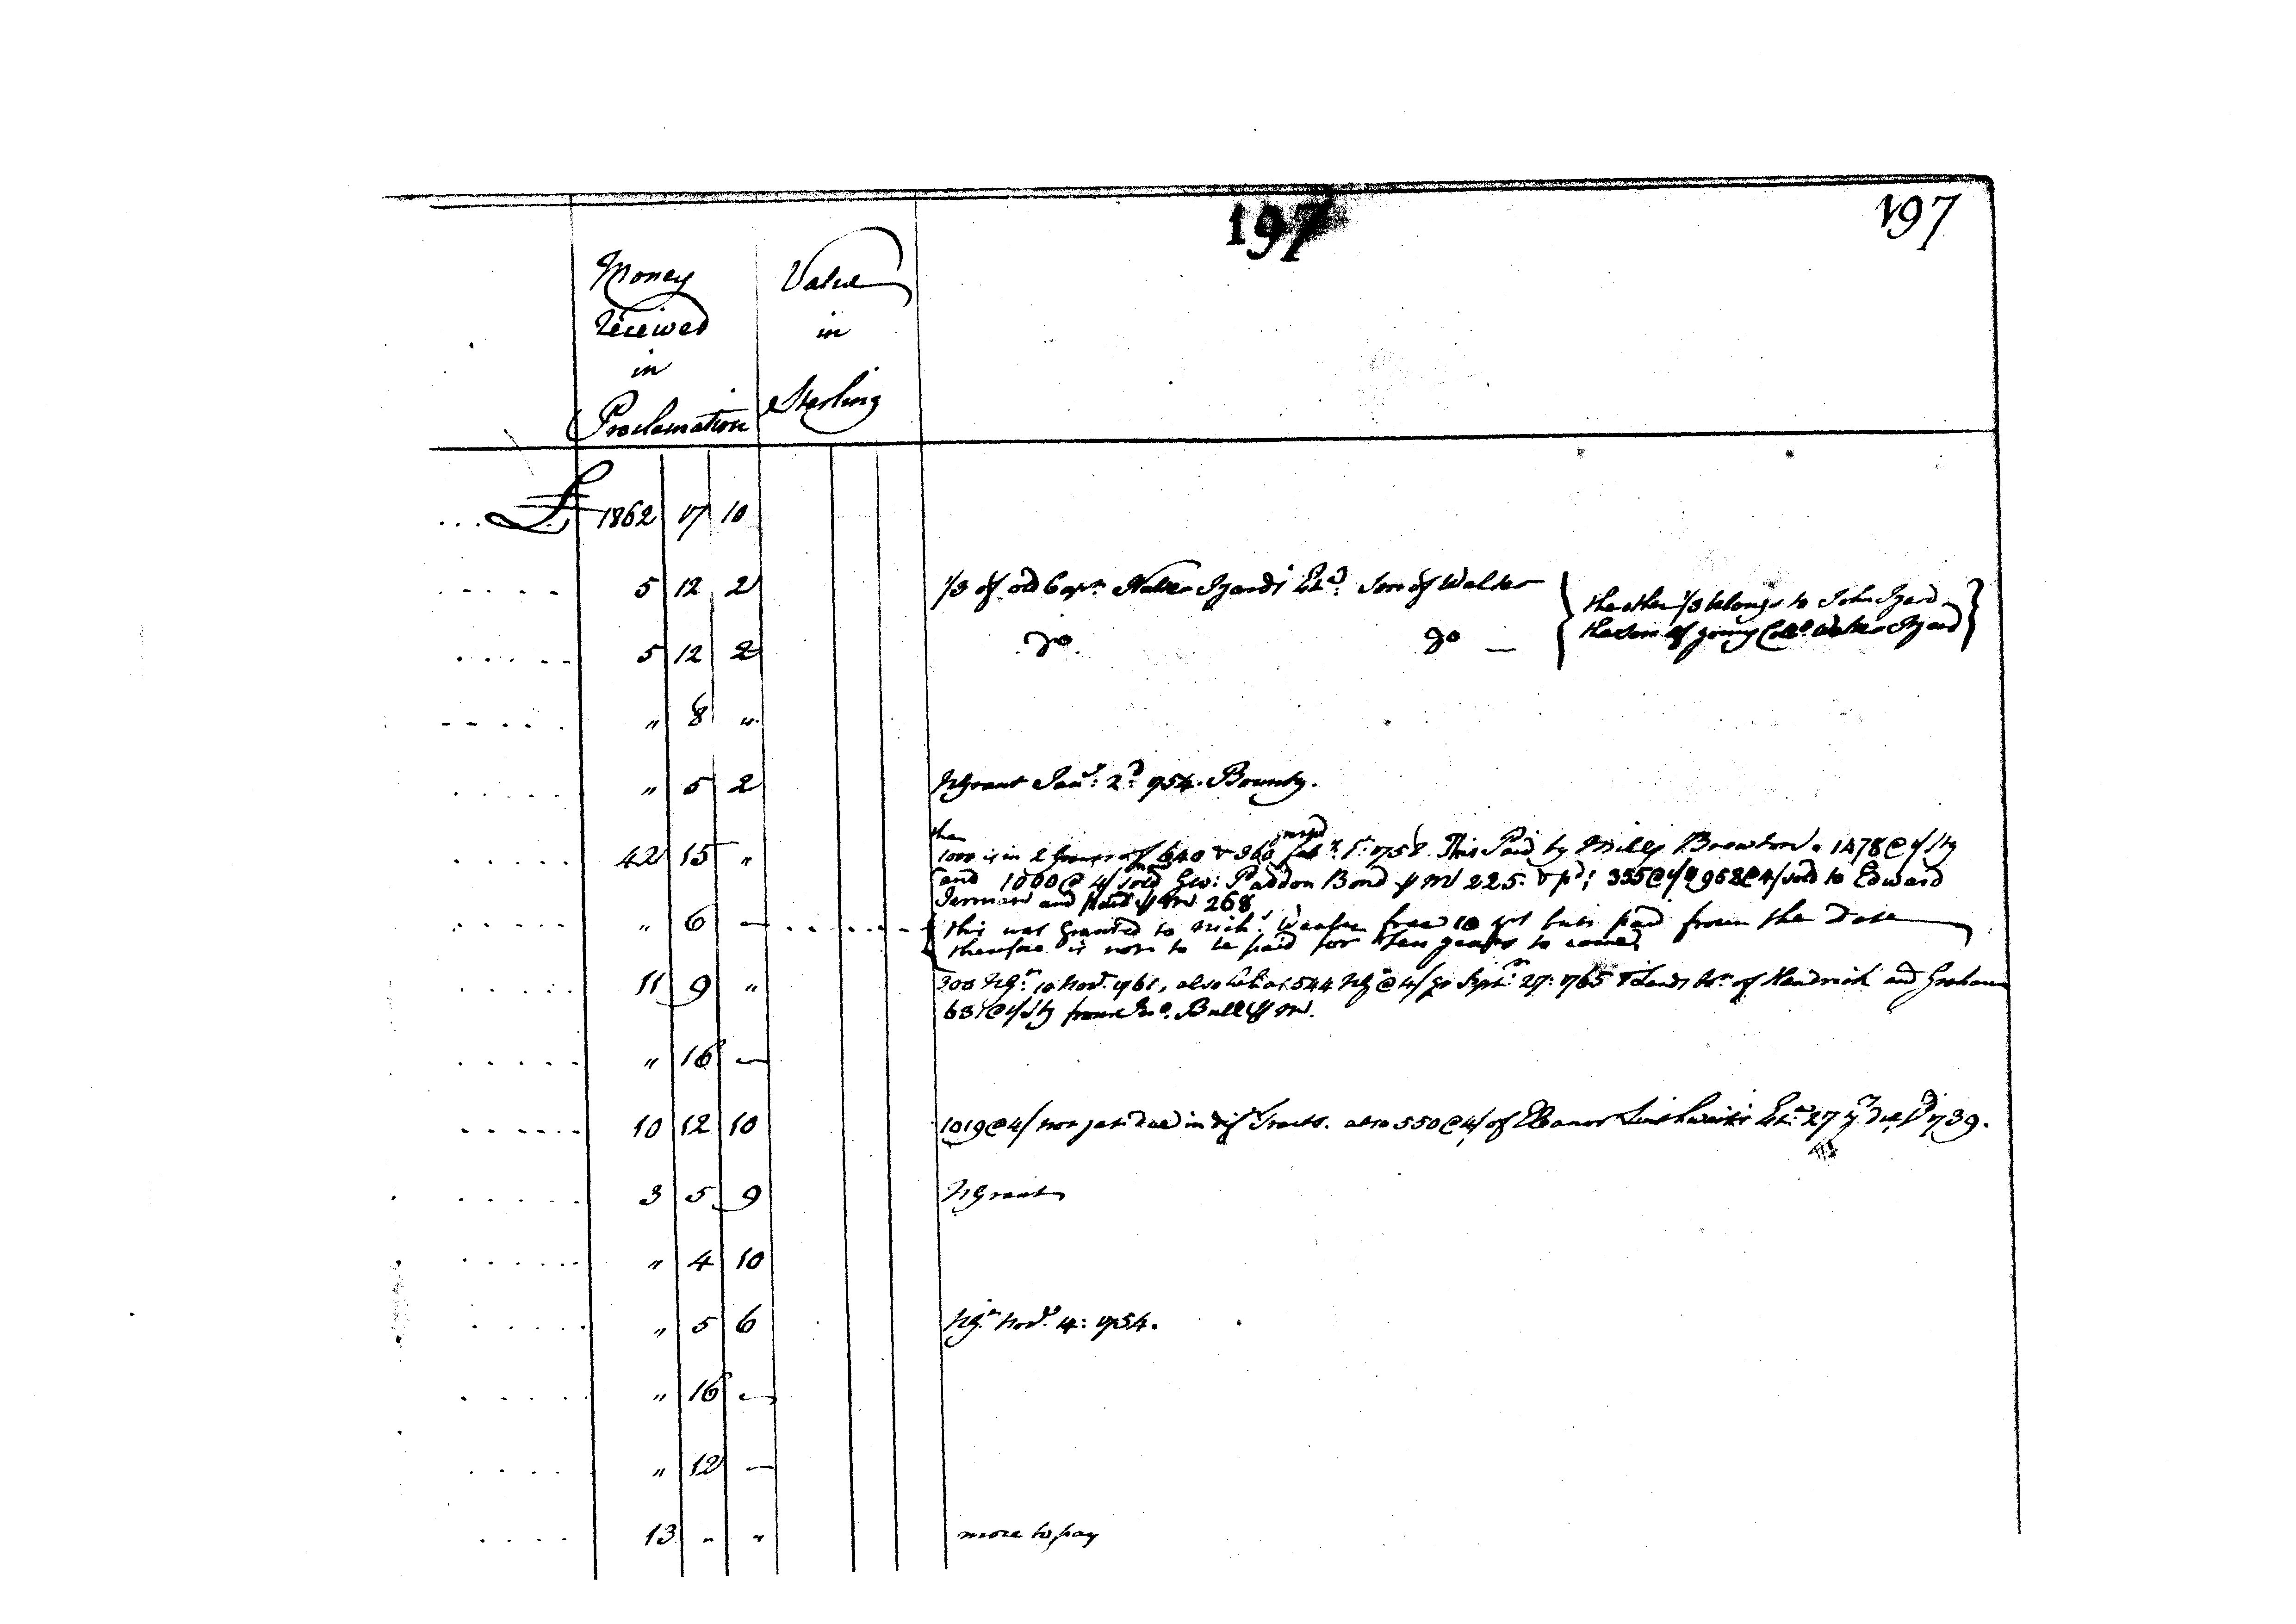 197
197
Money
Received
in
Proclamation
Value
in
Sterling
£ 1862 17 10
5 12 2 1/3 of old Capn. Walter Izards Este. Son of Walter
the other 1/3 belongs to John Izard
the son of young Collo. Walter Izard
5 12 2 Do. Do —
" 8 "
" 5 2 NGrant Jany: 2d. 754. Bounty.
the
42 15 " 1000 is in 2 Grants of 640 & 360 1758. This Paid by Miles Brewton. 1478@ Stg
and 1000@ 4/ sold Geo: Paddon Bond 225. & pd; 355@ & 958@ 4/ sold to Edward
Jerman and paid 268
" 6 — this was Granted to Free 10 but paid from the Date
therefore is now to be paid for Ten years to come
11 9 " 300 NGt. 10 Novr. 761, also 544 NG @ 4/ Septr. 27: 1765 & Lands of Hendrick and Graham
631@ Stg from Jno. Bull
" 16 —
10 12 10 1019@4/ not yet due in Tracts. also 550@4/ of Eleanor Este. 27 1739.
3 5 9 NGrant
" 4 10
" 5 6 NGt. Novr. 4: 754.
" 16 —
" 12 —
13 " " more to pay